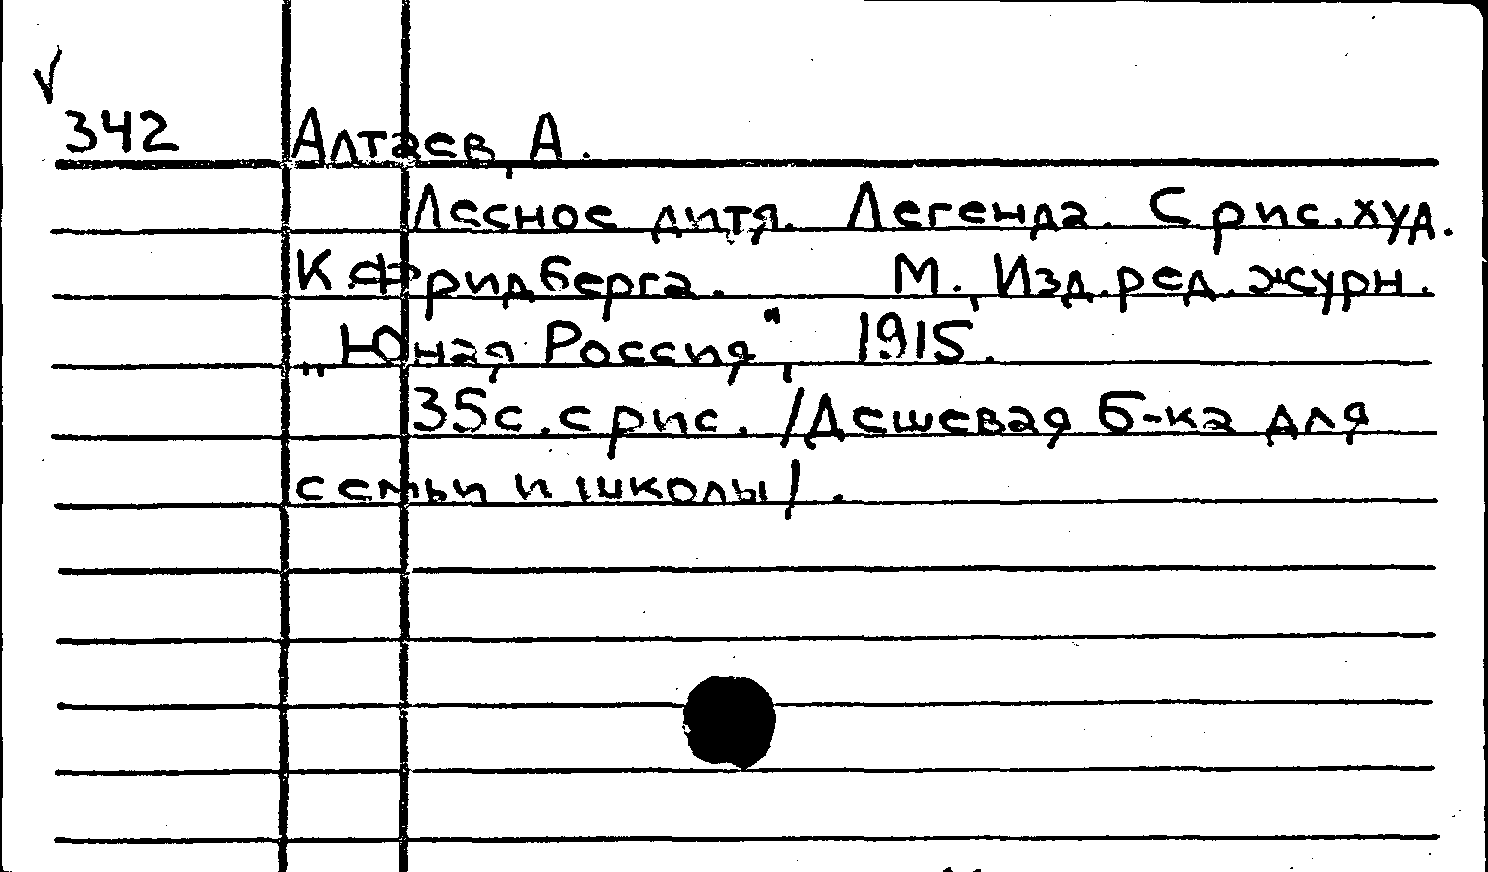 √
342 Алтаев, А.
Лесное дитя. Легенда. С рис. худ.
К Фридберга. М., Изд. ред. журн.
„Юная Россия", 1915.
35с. с рис. /Дешевая б-ка для
семьи и школы/.